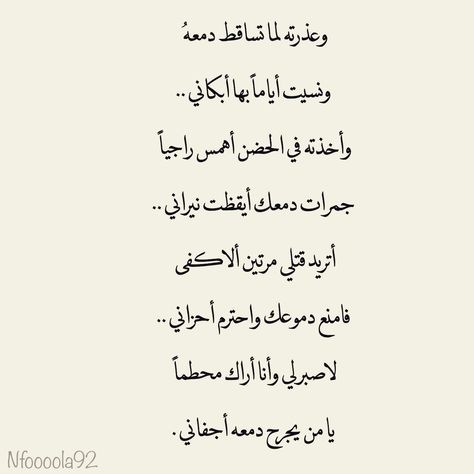 وعذرته لما تساقط دمعهُ
ونسيت أياماً بها أبكاني ..
وأخذته في الحضن أهمس راجياً
جمرات دمعك أيقظت نيراني ..
أتريد قتلي مرتين ألا كفى
فامنع دموعك واحترم أحزاني ..
لا صبر لي وأنا أراك محطماً
يا من يجرح دمعه أجفاني .
Nfoooola92